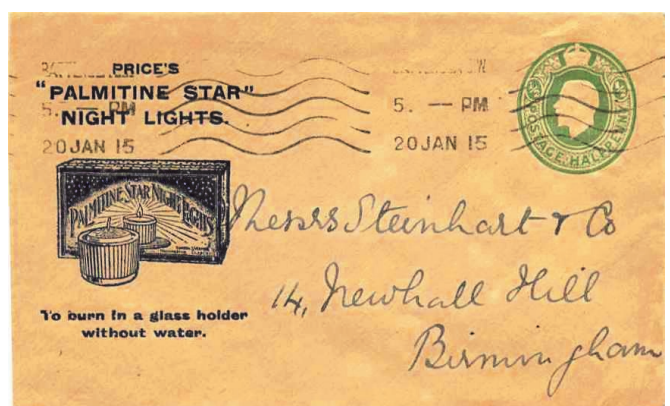 PRICE'S
"PALMITINE STAR"
NIGHT LIGHTS.
5. — PM
20 JAN 15
5. — PM
20 JAN 15
POSTAGE HALFPENNY
PALMITINE STAR NIGHT LIGHTS
To burn in a glass holder
without water.
Messrs Steinhart & Co
14, Newhall Hill
Birmingham